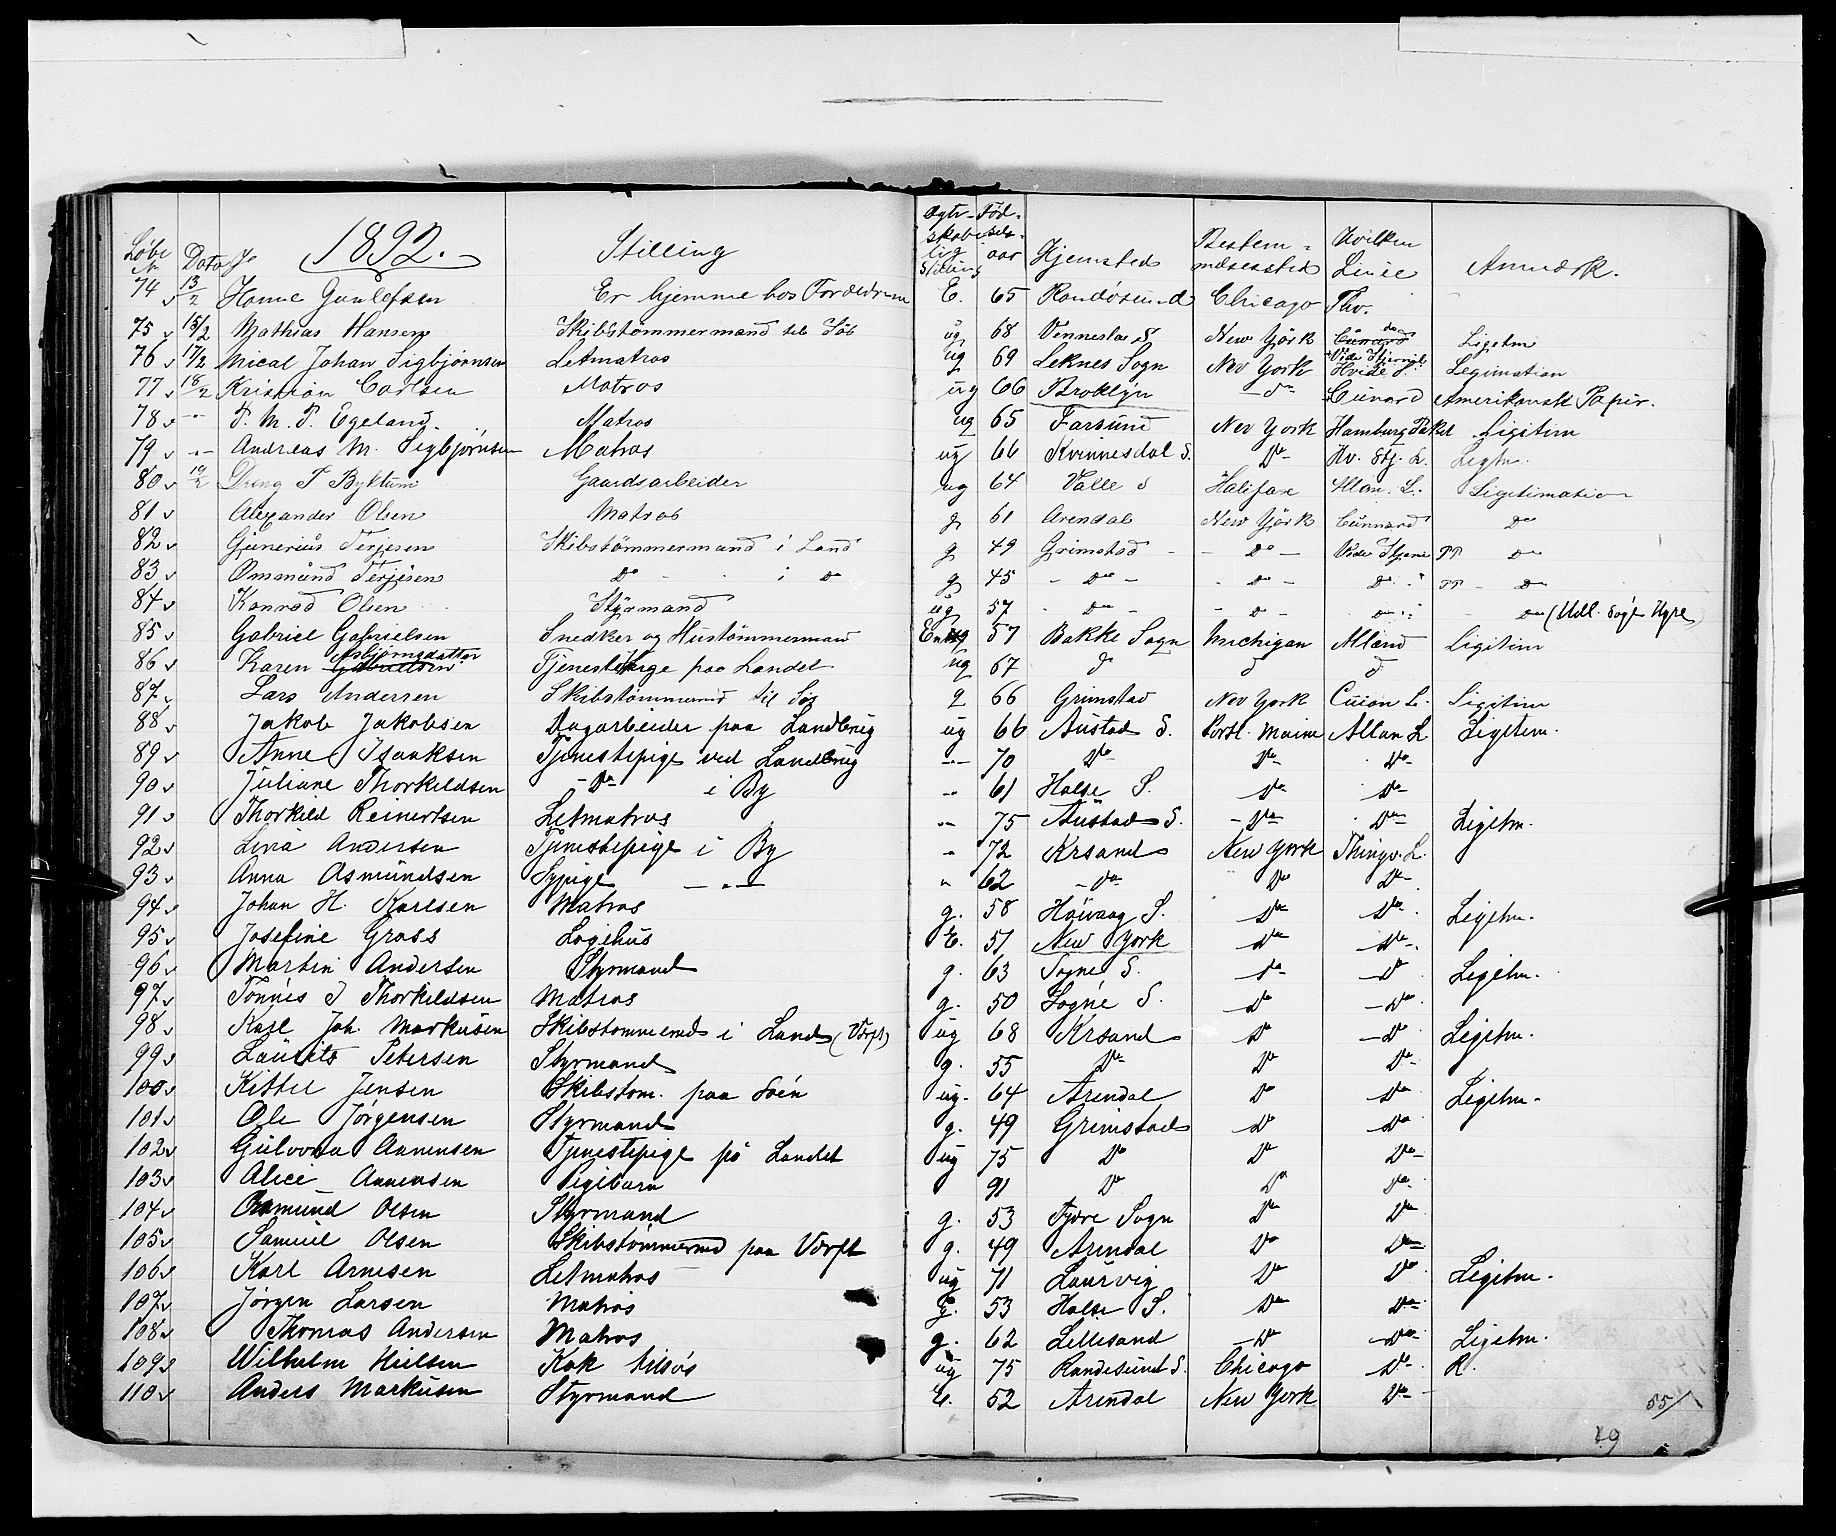 Løbe No Dato 1892. Stilling Ægteskabelig Stilling Fødselsaar Hjemsted Bestemmelsessted Hvilken Linie Anmærk.
74 13/2 Hanne Gunlefsen Er hjemme hos Forældrene E. 65 Randøsund Chicago Thv.
75 15/2 Mathias Hansen Skibstømmermand til Søs ug 68 Vennesla S New York Cunard Ligitm
76 17/2 Mical Johan Sigbjørnsen Letmatros ug 69 Leknes Sogn New York Hvide S. Legimation
77 18/2 Kristian Carlsen Matros ug 66 Broklyn do Cunard Amerikansk Papir.
78 -"- T. M. T. Egeland. Matros ug 65 Farsund New York Hamburg Paket Ligitim
79 -"- Andreas M. Sigbjørnsen Matros ug 66 Kvinnesdal S. Do Hv. Stj. L. Ligtm.
80 19/2 Dreng T Byklum Gaardsarbeider ug 64 Valle S Halifax Allan. L. Ligitimation
81 Alexander Olsen Matros g 61 Arendal New York Cunnard Do
82 Gunerius Terjesen Skibstømmermand i Land g 49 Grimstad - Do - Vide Stjerne PP Do
83 Omsmund Terjesen Do i Do g 45 - Do - - Do - Do PP - Do
84 Konrad Olsen Styrmand ug 57 - Do - - Do - Do Do
85 Gabriel Gabrielsen Snedker og Hustømmermand 57 Bakke Sogn Michigan Alland Ligitim
86 Karen Asbjørnsdatter Gabrielsen Tjenestepige paa Landet ug 67 d d d
87 Lars Andersen Skibstømmermd til Søs g 66 Grimstad New York Cuion L. Ligitim
88 Jakob Jakobsen Dagarbeider paa Landbrug ug 66 Austad S. Portl. Maine Allan L Ligitim.
89 Anne Isaaksen Tjenestepige ved Landbrug -"- 70 Do Do Do
90 Juliane Thorkildsen - Do - i By " 61 Halse S. Do Do
91 Thorkild Reinertsen Letmatros -"- 75 Austad S. - Do Do Ligitm.
92 Lina Andersen Tjenestepige i By " 72 Krsand New York Thingv. L.
93 Anna Asmundsen Sypige -"- " 62 - Do Do Do
94 Johan H. Karlsen Matros g. 58 Høivaag S. Do Do Ligitm.
95 Josefine Grass Logihus E. 51 New York Do Do
96 Martin Andersen Styrmand g. 63 Sogne S. Do Do Ligitm.
97 Tønnes J Thorkildsen Matros g. 50 Søgne S. Do Do
98 Karl Joh. Markusen Skibstømmermd i Land (Værft) ug 68 Krsand Do Do Ligitm.
99 Laurits Petersen Styrmand g. 55 Do Do Do
100 Kittel Jensen Skibstøm. paa Søen ug. 64 Arendal Do Do Ligitm.
101 Ole Jørgensen Styrmand g. 49 Grimstad Do Do
102 Gulovda Annensen Tjenestepige på Landet ug 75 Do Do Do
103 Alice Annensen Pigebarn 91 Do Do Do
104 Osmund Olsen Styrmand g. 53 Fjære Sogn Do Do
105 Samuel Olsen Skibstømmermd paa Værft g. 49 Arendal Do Do
106 Karl Arnesen Letmatros ug 71 Laurvig Do Do Ligitm.
107 Jørgen Larsen Matros g. 53 Halse S. Do Do
108 Thomas Andersen Matros g. 62 Lillesand Do Do Ligitm.
109 Wilhelm Nielsen Kok tilsøs ug 75 Randesund S. Chicago Do R.
110 Anders Markusen Styrmand E. 52 Arendal New York Do
55/